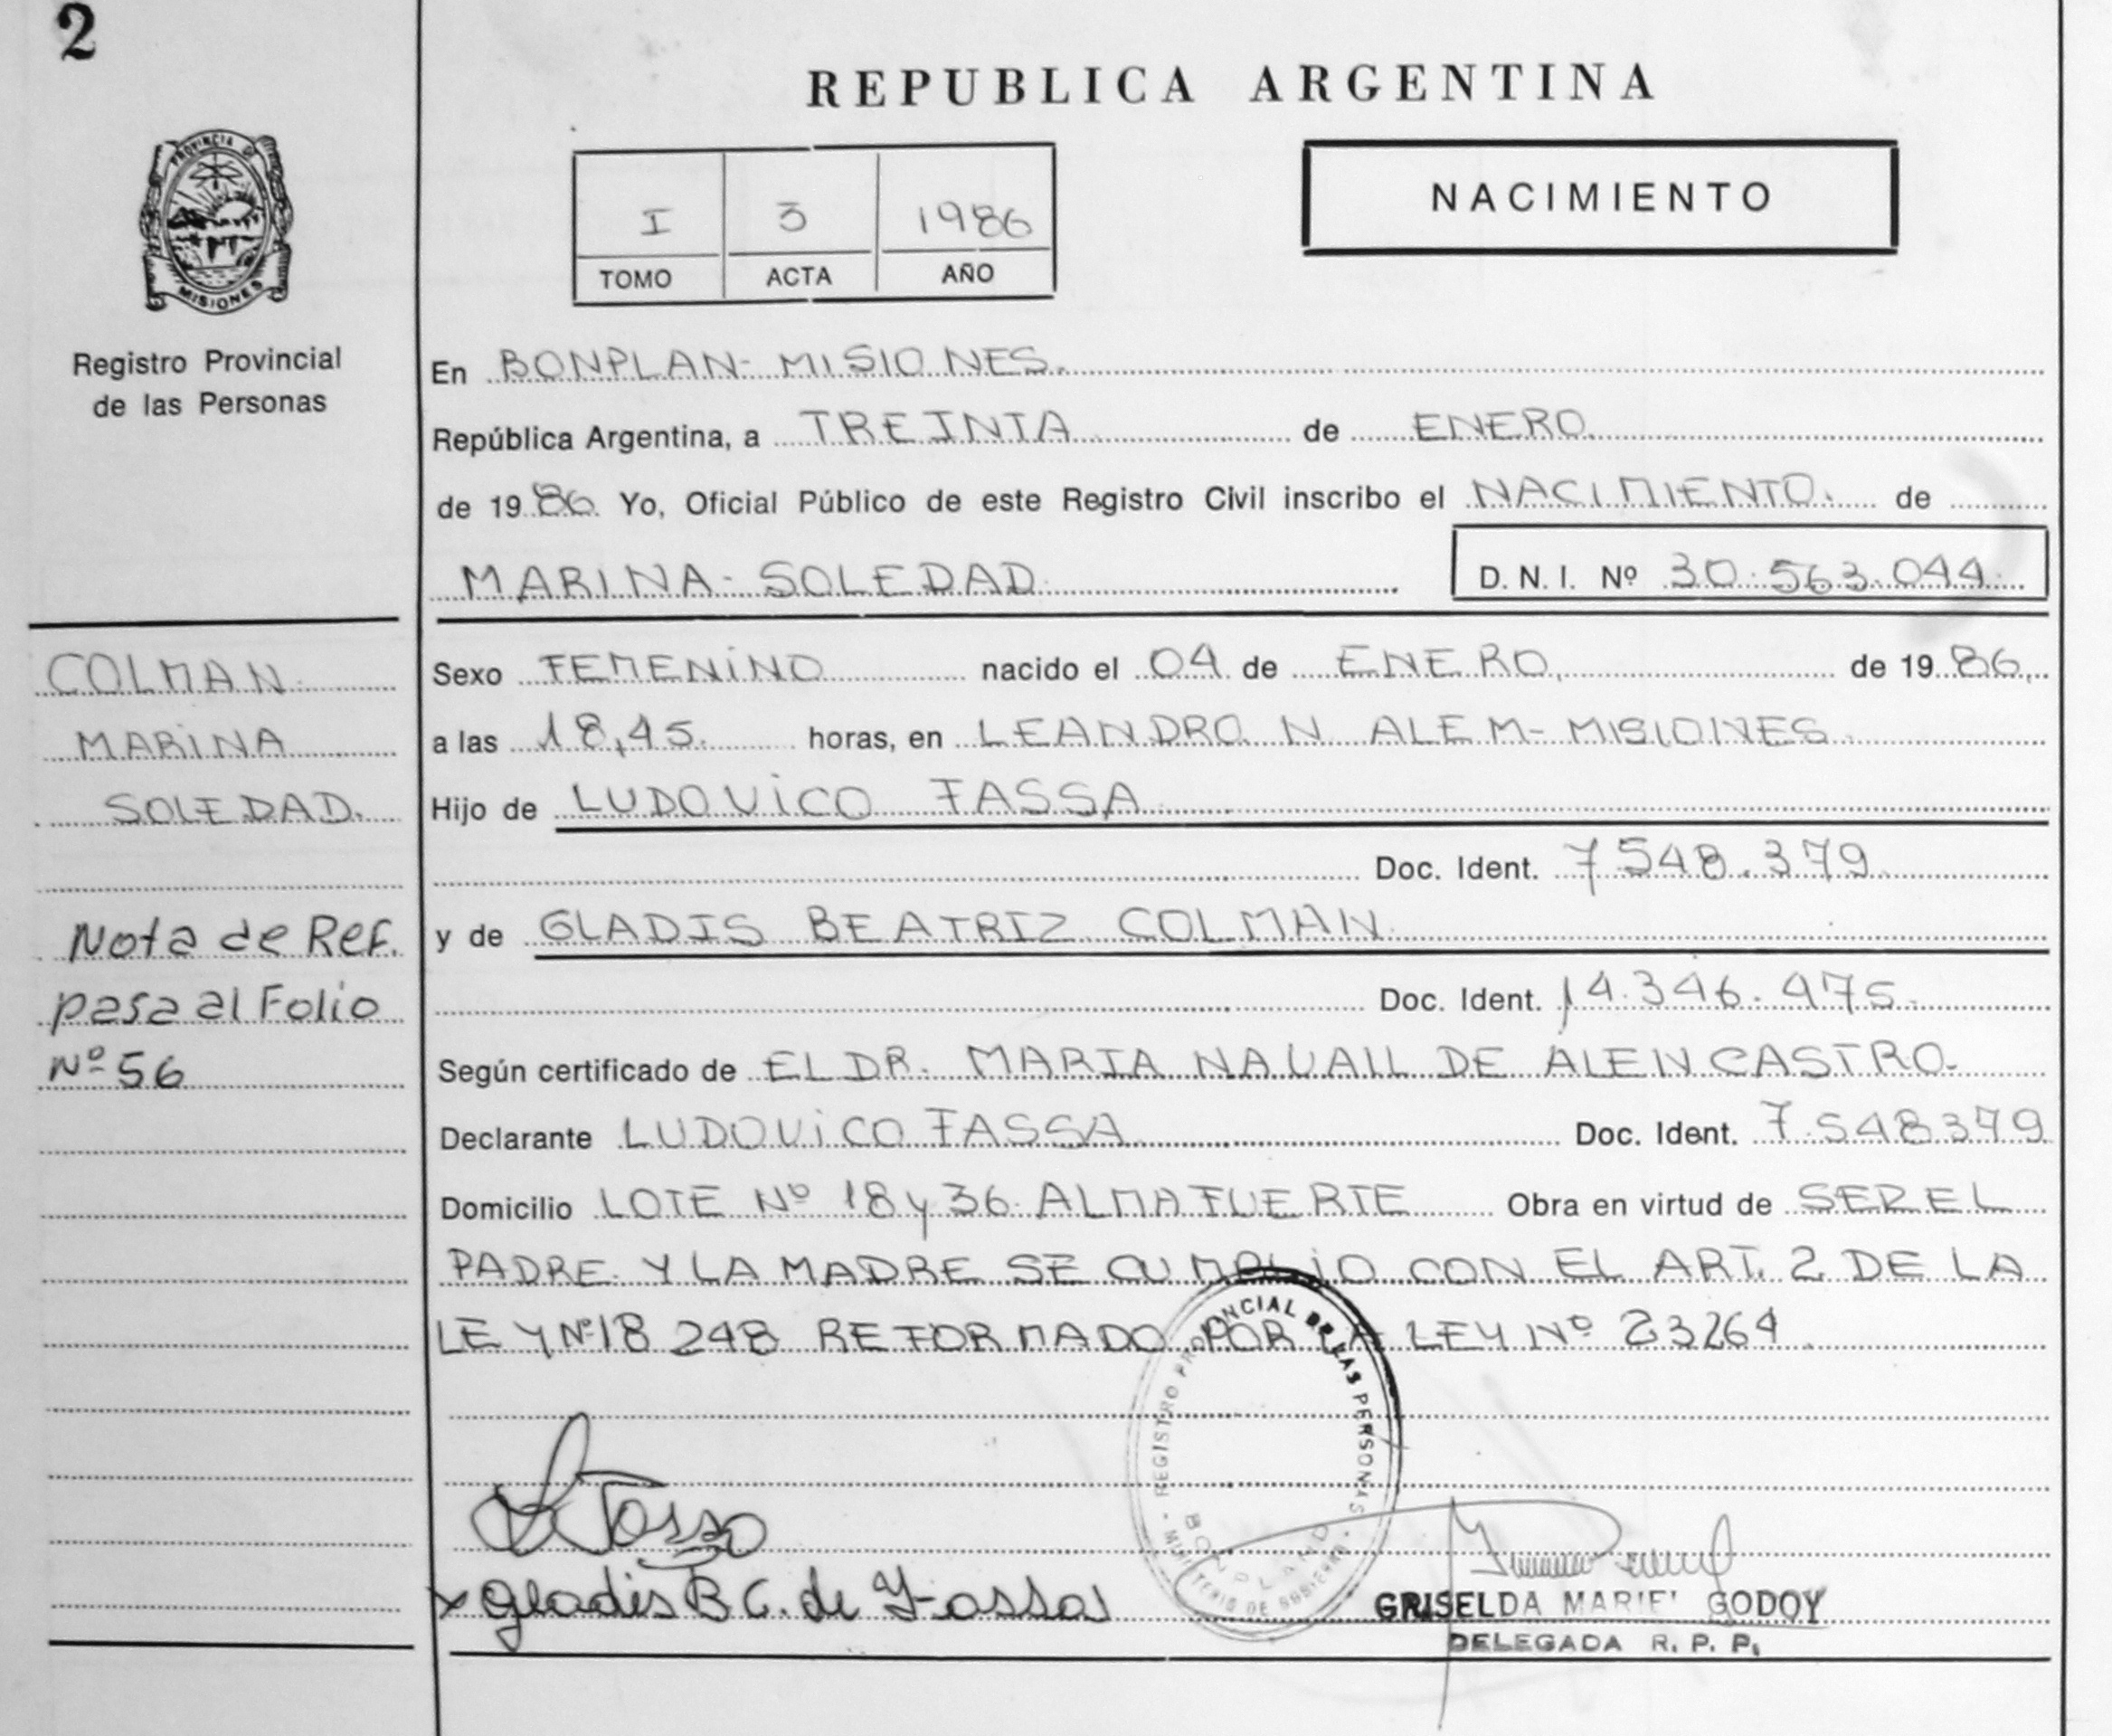 2
REPUBLICA ARGENTINA
PROVINCIA DE
MISIONES
Registro Provincial
de las Personas
I 3 1986
TOMO ACTA AÑO
NACIMIENTO
En BONPLAN- MISIONES.
República Argentina, a TREINTA de ENERO.
de 1986 Yo, Oficial Público de este Registro Civil inscribo el NACIMIENTO. de
MARINA- SOLEDAD
D. N. I. Nº 30.563.044
COLMAN
MARINA
SOLEDAD.
Nota de Ref.
pasa al Folio
Nº 56
Sexo FEMENINO nacido el 04 de ENERO, de 1986,
a las 18,45. horas, en LEANDRO N ALEM- MISIONES.
Hijo de LUDOVICO FASSA
Doc. Ident. 7548.379
y de GLADIS BEATRIZ COLMAN
Doc. Ident. 14.346.475
Según certificado de EL DR. MARIA NAVAIL DE ALENCASTRO
Declarante LUDOVICO FASSA Doc. Ident. 7.548379
Domicilio LOTE Nº 18 y 36 ALMAFUERTE Obra en virtud de SER EL
PADRE Y LA MADRE SE CUMPLIO CON EL ART. 2 DE LA
LEY Nº18 248 REFORMADO POR LA LEY Nº 23264
REGISTRO PROVINCIAL DE LAS PERSONAS
BONPLAND
MINISTERIO DE GOBIERNO
Gladis B C. de Fassa
GRISELDA MARIEL GODOY
DELEGADA R. P. P.